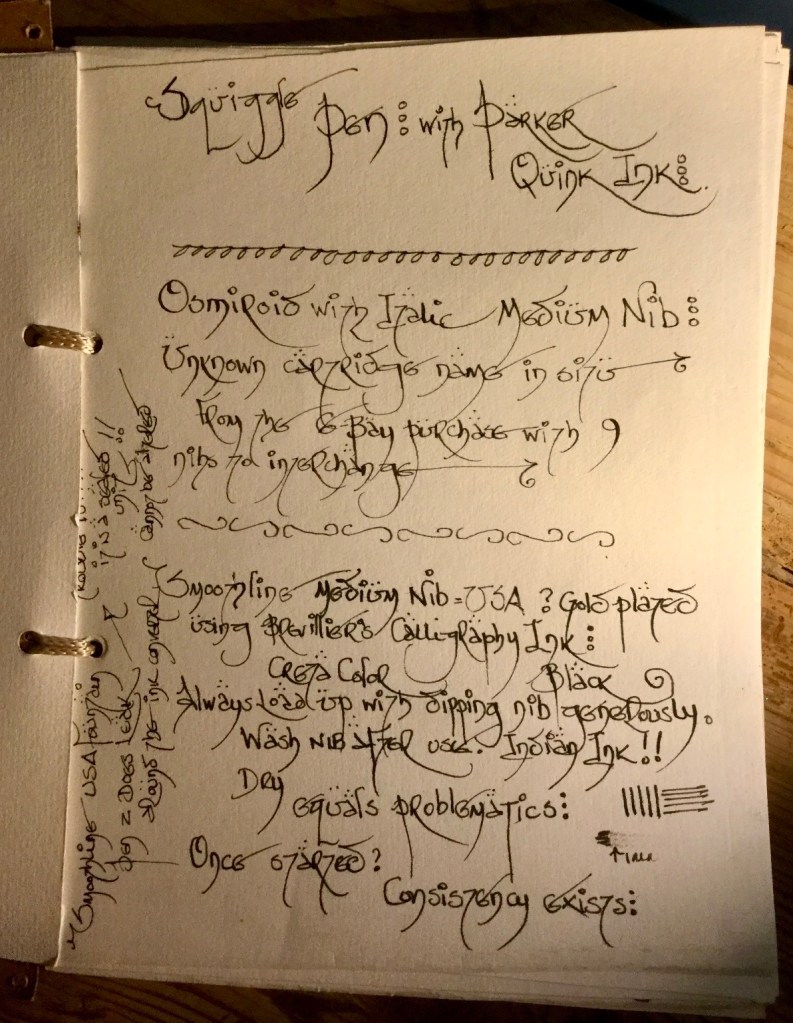 Squiggle Pen: with Parker
Quink Ink:
Osmiroid with Italic Medium Nib:
Unknown cartridge name in situ
From the E Bay purchase with 9
nibs to interchange
Smoothline Medium Nib = USA ? Gold plated
using Brevillier's Calligraphy Ink:
Creta Color Black
Always Load up with dipping nib generously.
Wash nib after use. Indian Ink!!
Dry
equals problematics:
Once started?
Consistency exists:
Smoothline USA Fountain
Pen z Does Leak
around the ink converter
it is a sealed !!
unit
cannot be altered